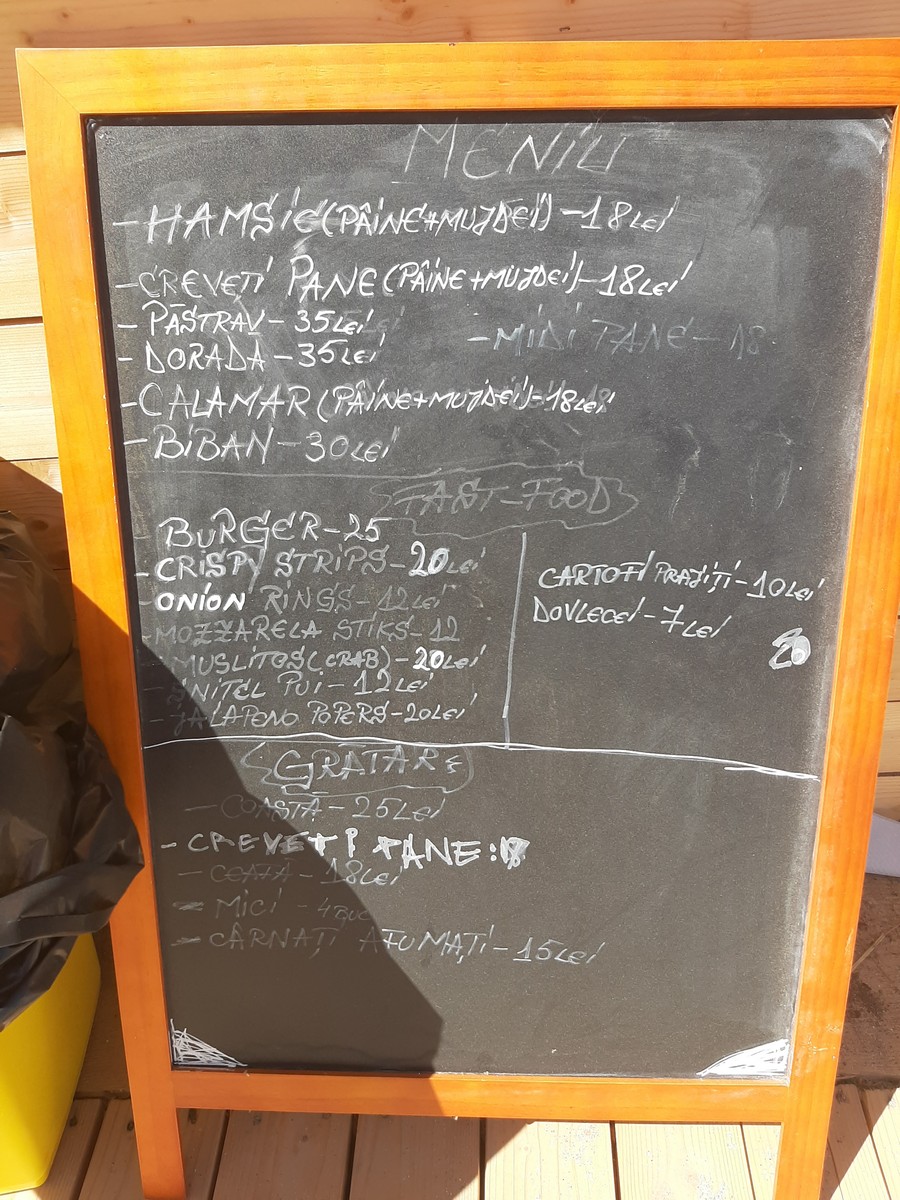 MENIU
- HAMSIE (PÂINE+MUJDEI) - 18 LEI
- CREVEȚI PANE (PÂINE+MUJDEI) - 18 LEI
- PĂSTRĂV - 35 LEI
- MIDI PANE - 18
- DORADĂ - 35 LEI
- CALAMAR (PÂINE+MUJDEI) - 18 LEI
- BIBAN - 30 LEI
FAST-FOOD
BURGER - 25
- CRISPY STRIPS - 20 LEI
- ONION RINGS - 12 LEI
- MOZZARELA STIKS - 12
MUSLITOS (CRAB) - 20 LEI
- ȘNIȚEL PUI - 12 LEI
- JALAPENO POPERS - 20 LEI
CARTOFI PRAJIȚI - 10 LEI
DOVLECEI - 7 LEI
GRATAR
- COASTĂ - 25 LEI
- CREVETI PANE: 18
- CEAFĂ - 18 LEI
- MICI - 4
- CÂRNAȚI AFUMAȚI - 15 LEI